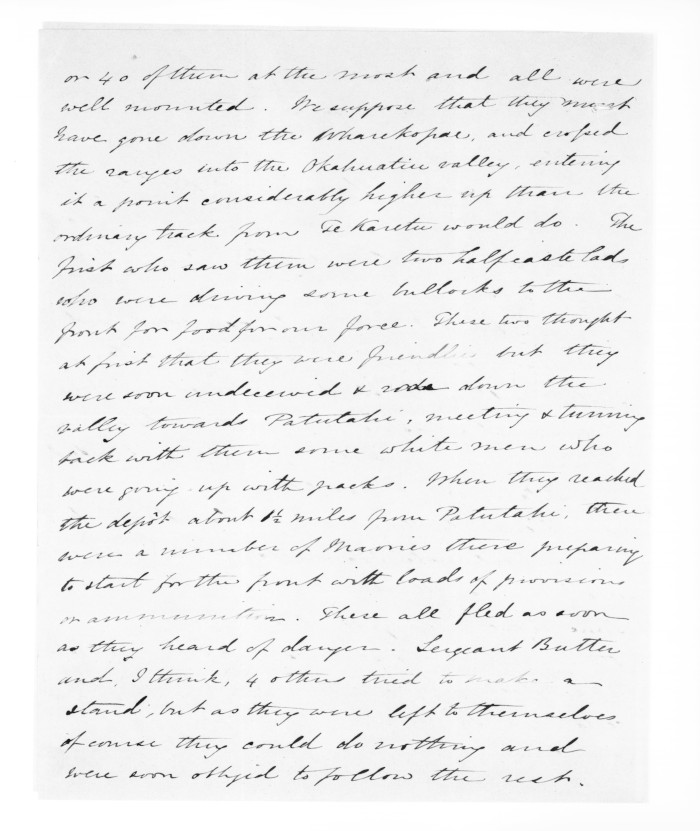 or 40 of them at the most and all were
well mounted. We suppose that they must
have gone down the Wharekopae, and crossed
the ranges into the Okahuatiu valley, entering
it a point considerably higher up than the
ordinary track from Te Karetu would do. The
first who saw them were two halfcaste lads
who were driving some bullocks to the
front for food for our force. These two thought
at first that they were friendlies but they
were soon undeceivid & rode down the
valley towards Patutahi, meeting & turning
back with them some white men who
were going up with packs. When they reached
the depôt about 1½ miles from Patutahi, there
were a number of Maories there preparing
to start for the front with loads of provisions
or ammunition. These all fled as soon
as they heard of danger. Sergeant Butter
and, I think, 4 others tried to make a
stand, but as they were left to themselves
of course they could do nothing and
were soon obligid to follow the rest.